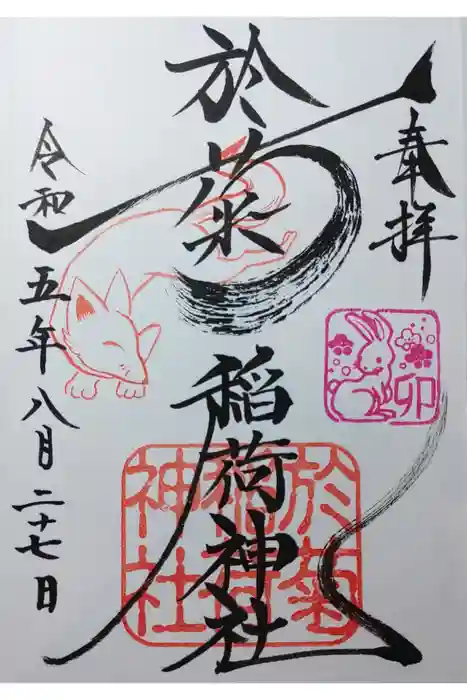 奉拝
卯
於菊稲荷神社
於菊
稲荷
神社
令和五年八月二十七日